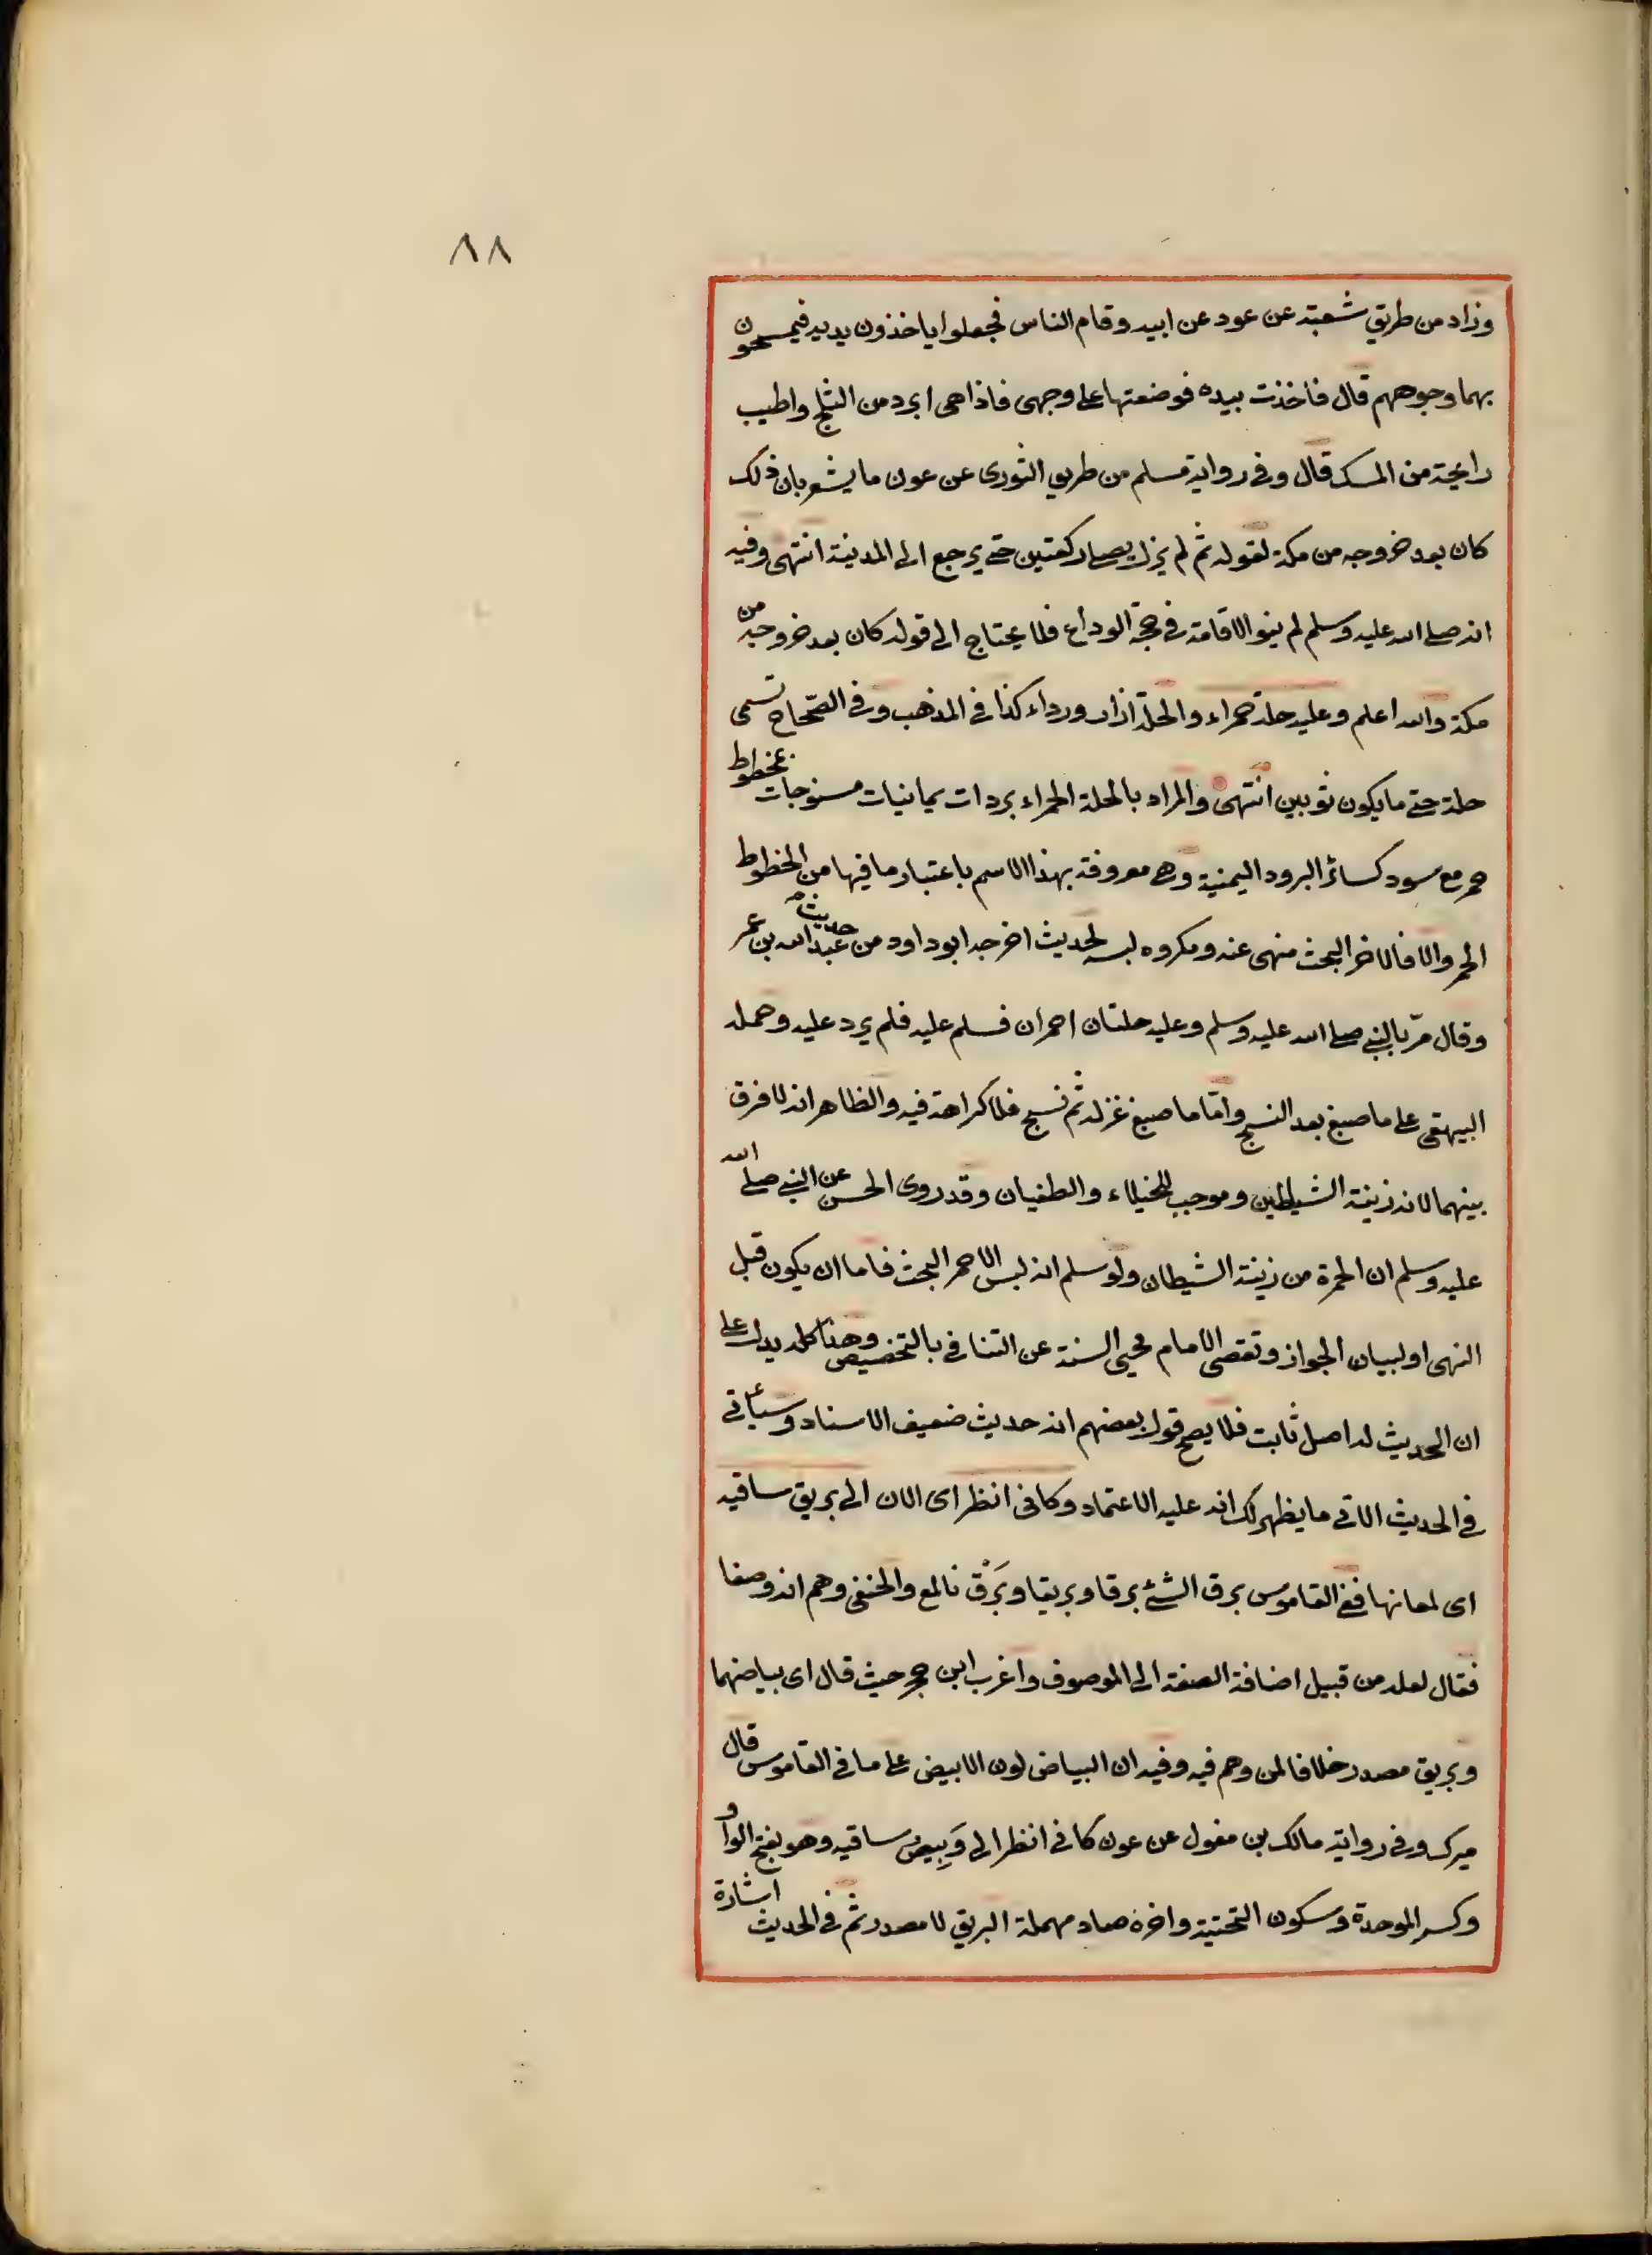 ٨٨
وزاد من طريق شعبة عن عود عن ابيه وقام الناس فجعلوا ياخذون يديه فيمسحون
بهما وجوههم قال فاخذت بيده فوضعتها على وجهى فاذا هى ابرد من الثلج واطيب
رايحة من المسك قال وفى رواية مسلم من طريق الثورى عن عون ما يشعر بان ذلك
كان بعد خروجه من مكة لقوله ثم لم يزل يصلى ركعتين حتى يرجع الى المدينة انتهى وفيه
انه صلى الله عليه وسلم لم ينو الاقامة فى حجة الوداع فلا يحتاج الى قوله كان بعد خروجه من
مكة والله اعلم وعليه حلة حمراء والحلة ازار ورداء كذا فى المذهب وفى الصّحاح تسمى
حلة حتى ما يكون ثوبين انتهى والمراد بالحلة الحمراء بردات يمانيات منسوجات بخطوط
حمر مع سود كسائر البرود اليمنية وهى معروفة بهذا الاسم باعتبار ما فيها من الخطوط
الحمر والا فالاخر البحث منهى عنه ومكروه لبسه لحديث اخرجه ابو داود من حديث عبد الله بن عمر
وقال مرّ بالنبى صلى الله عليه وسلم وعليه حلتان احمران فسلم عليه فلم يرد عليه وحمله
البيهقى على ما صبغ بعد النسج وامّا ما صبغ غزله ثم نسج فلا كراهة فيه والظاهر انه لا فرق
بينهما لانه زينة الشيطين وموجب للخيلاء والطغيان وقد روى الحسن عن النبى صلى الله
عليه وسلم ان الحمرة من زينة الشيطان ولو سلم انه لبس الاحمر البحث فاما ان يكون قبل
النهى او لبيان الجواز وتقصى الامام محيى السنة عن التنافى بالتخصيص وهذا كله يدل على
ان الحديث له اصل ثابت فلا يصح قول بعضهم انه حديث ضعيف الاسناد وسيأتى
فى الحديث الاتى ما يظهر لك انه عليه الاعتماد وكانى انظر اى الان الى بريق ساقيه
اى لمعانها ففى القاموس برق الشئ برقا وبريقا وبَرَق نا لمع والحنفى وهم انه وصفا
فقال لعله من قبيل اضافة الصفة الى الموصوف واغرب ابن حجر حيث قال اى بياضهما
وبريق مصدر خلافا لمن وهم فيه وفيه ان البياض لون الابيض على ما فى القاموس قال
ميرك وفى رواية مالك بن مغول عن عون كانى انظر الى وَبِيص ساقيه وهو بفتح الواو
وكسر الموحدة وسكون التحتية واخره صاد مهملة البريق لا مصدر ثم فى الحديث اشارة